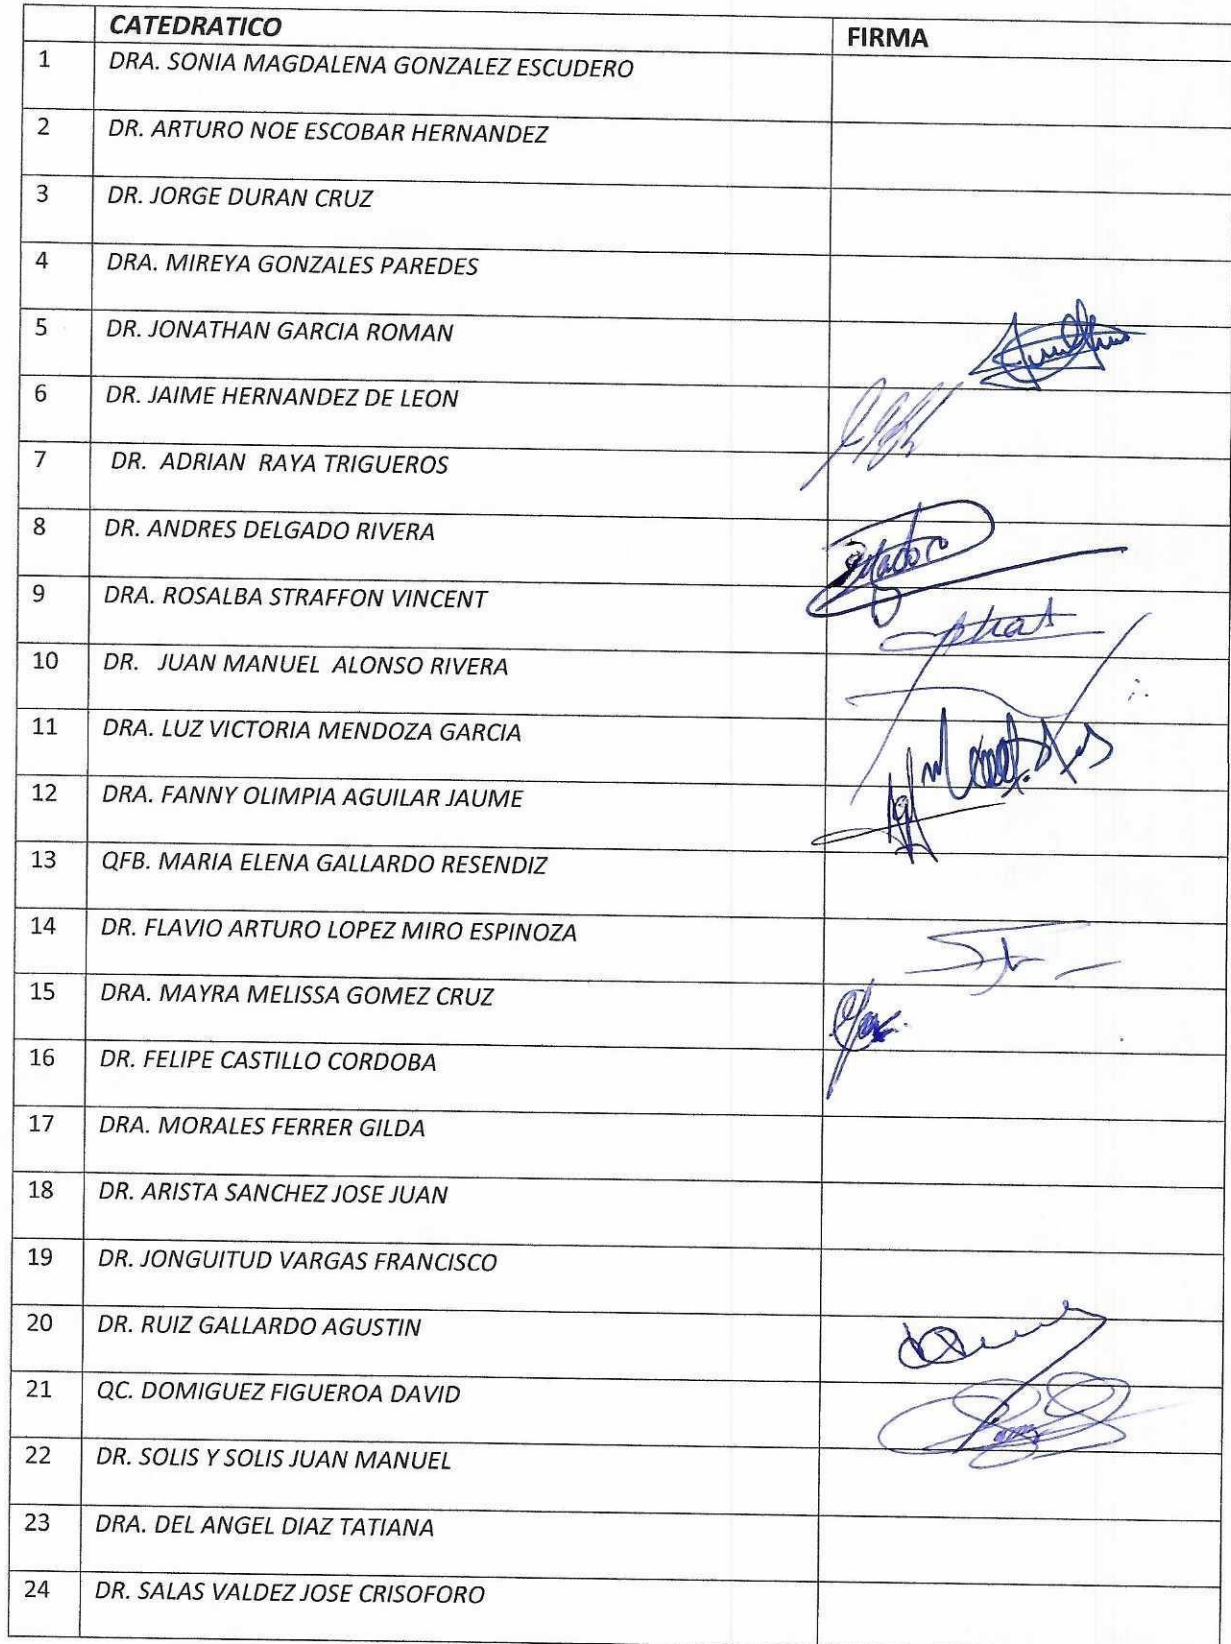 CATEDRATICO FIRMA
1 DRA. SONIA MAGDALENA GONZALEZ ESCUDERO
2 DR. ARTURO NOE ESCOBAR HERNANDEZ
3 DR. JORGE DURAN CRUZ
4 DRA. MIREYA GONZALES PAREDES
5 DR. JONATHAN GARCIA ROMAN
6 DR. JAIME HERNANDEZ DE LEON
7 DR. ADRIAN RAYA TRIGUEROS
8 DR. ANDRES DELGADO RIVERA
9 DRA. ROSALBA STRAFFON VINCENT
10 DR. JUAN MANUEL ALONSO RIVERA
11 DRA. LUZ VICTORIA MENDOZA GARCIA
12 DRA. FANNY OLIMPIA AGUILAR JAUME
13 QFB. MARIA ELENA GALLARDO RESENDIZ
14 DR. FLAVIO ARTURO LOPEZ MIRO ESPINOZA
15 DRA. MAYRA MELISSA GOMEZ CRUZ
16 DR. FELIPE CASTILLO CORDOBA
17 DRA. MORALES FERRER GILDA
18 DR. ARISTA SANCHEZ JOSE JUAN
19 DR. JONGUITUD VARGAS FRANCISCO
20 DR. RUIZ GALLARDO AGUSTIN
21 QC. DOMIGUEZ FIGUEROA DAVID
22 DR. SOLIS Y SOLIS JUAN MANUEL
23 DRA. DEL ANGEL DIAZ TATIANA
24 DR. SALAS VALDEZ JOSE CRISOFORO